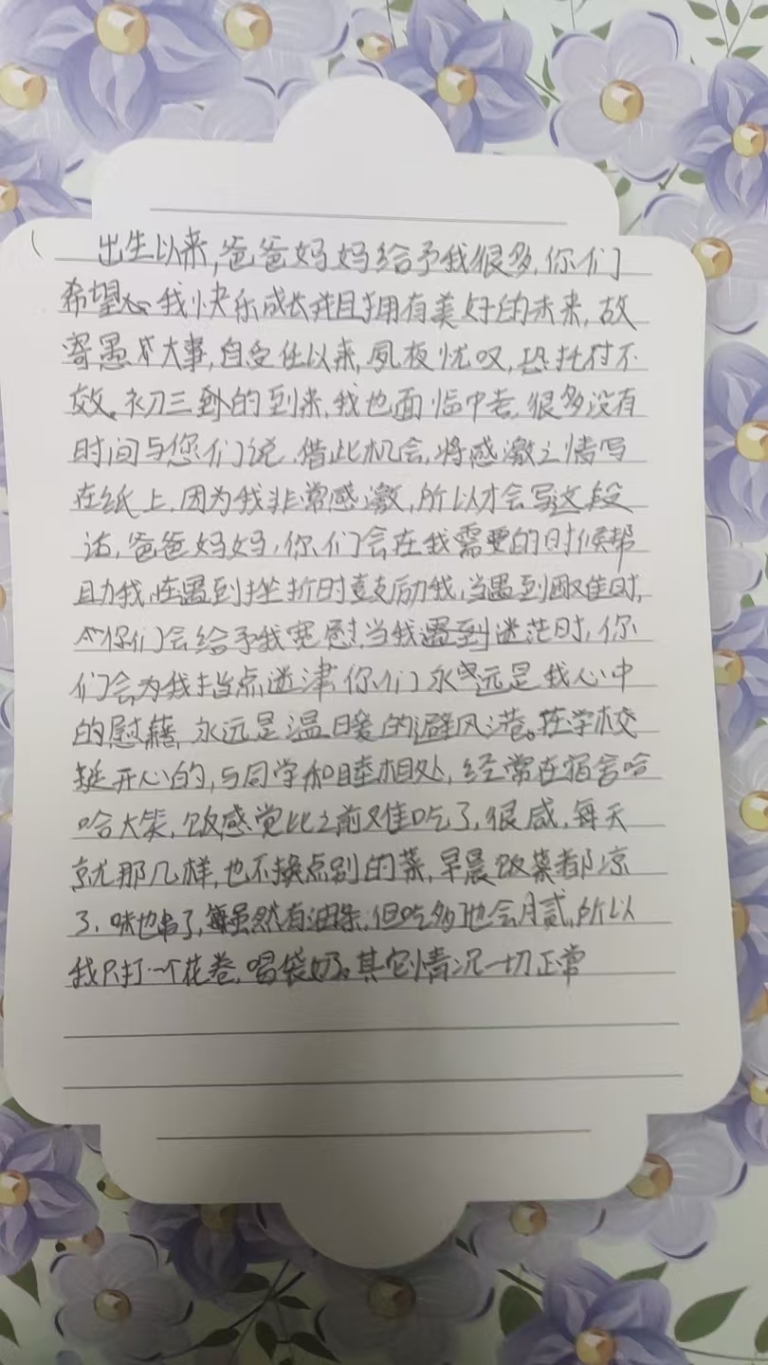 出生以来,爸爸妈妈给予我很多,你们
希望 我快乐成长并且拥有美好的未来,故
寄愚以大事,自受任以来,夙夜忧叹,恐托付不
效。初三 的到来,我也面临中考,很多没有
时间与您们说,借此机会,将感激之情写
在纸上,因为我非常感激,所以才会写这段
话,爸爸妈妈,你们会在我需要的时候帮
助我,在遇到挫折时鼓励我,当遇到困难时,
你们会给予我宽慰,当我遇到迷茫时,你
们会为我指点迷津,你们永远是我心中
的慰藉,永远是温暖的避风港。在学校
挺开心的,与同学和睦相处,经常在宿舍哈
哈大笑,饭感觉比之前难吃了,很咸,每天
就那几样,也不换点别的菜,早晨饭菜都凉
了,味也串了, 虽然有油条,但吃多了也会腻,所以
我只打一个花卷,喝袋奶。其它情况一切正常